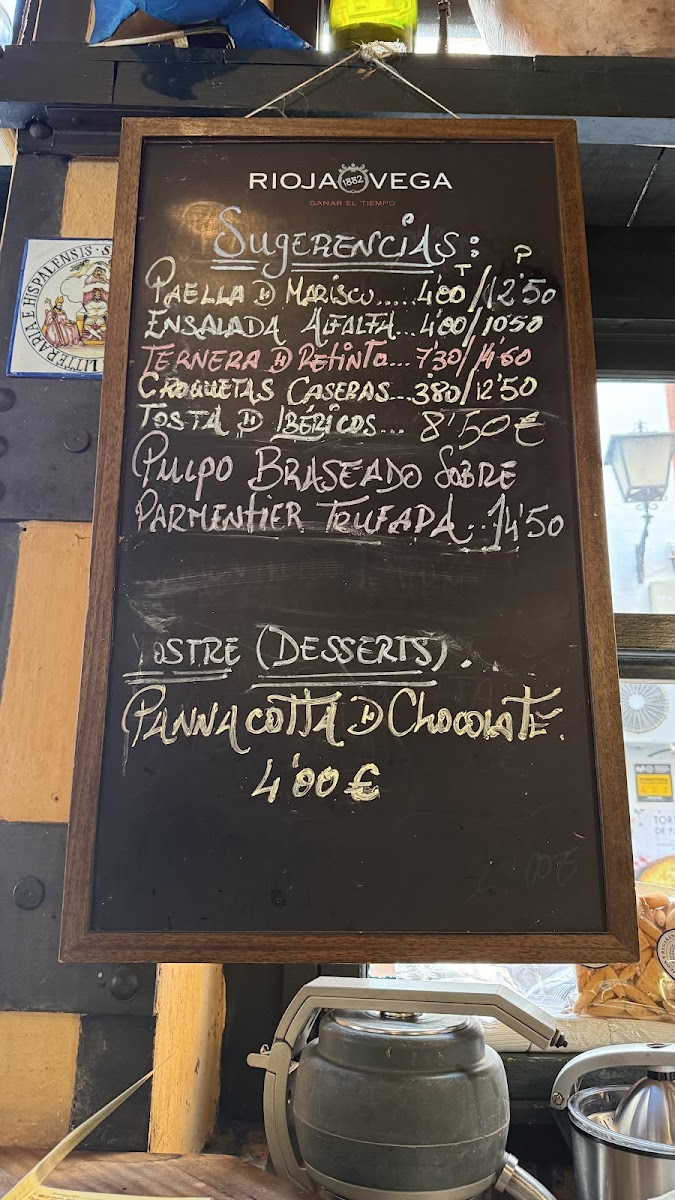 RIOJA 1882 VEGA
GANAR EL TIEMPO
SUGERENCIAS:
T P
PAELLA D MARISCO.....4'00/12'50
ENSALADA ALFALFA...4'00/10'50
TERNERA D RETINTO...7'30/14'60
CROQUETAS CASERAS...3'80/12'50
TOSTA D IBÉRICOS... 8'50€
PULPO BRASEADO SOBRE
PARMENTIER TRUFADA..14'50
POSTRE (DESSERTS).
PANNACOTTA D CHOCOLATE.
4'00€
LITTERARIA E HISPALENSIS · S
TORT
DE P